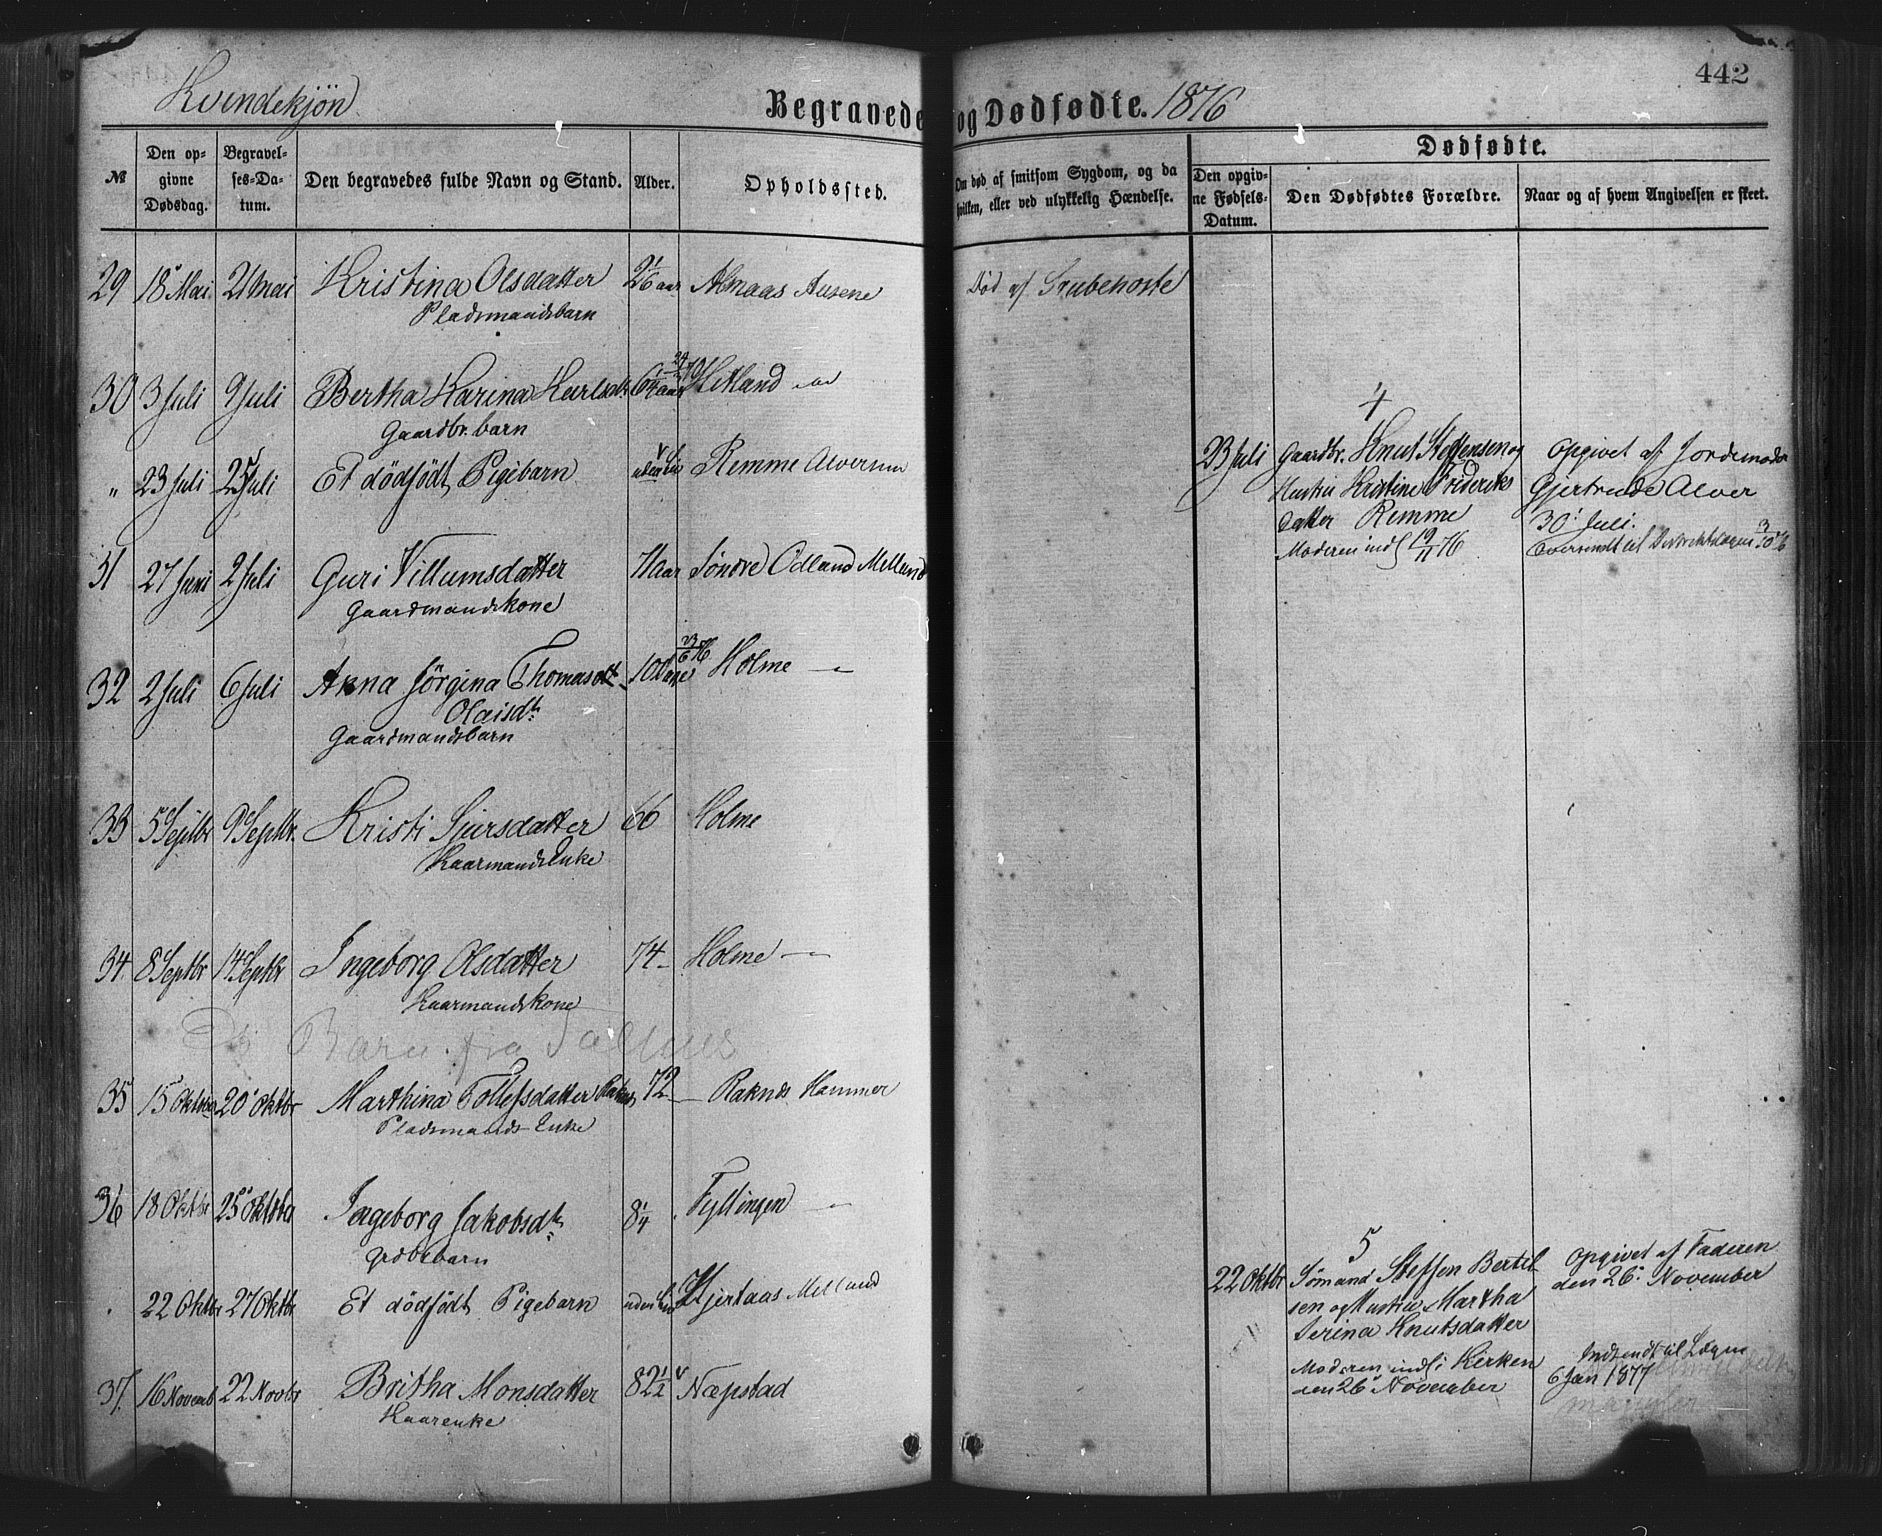 442
Kvindekjøn
Begravede og Dødfødte. 1876
№
Den opgivne Dødsdag.
Begravelses-Datum.
Den begravedes fulde Navn og Stand.
Alder.
Opholdssted.
Om død af smitsom Sygdom, og da hvilken, eller ved ulykkelig Hændelse.
Dødfødte.
Den opgivne Fødsels-Datum.
Den Dødfødtes Forældre.
Naar og af hvem Angivelsen er skeet.
29 18 Mai 21 Mai Kristina Olsdatter 2 1/6 aar Almaas Ausene Død af Strubehoste
Pladsmandsbarn
30 3 Juli 9 Juli Bertha Karina Karlsdt. Hitland
Gaardbr. barn
" 23 Juli 25 Juli Et dödfödt Pigebarn Remme Alversun
4
23 Juli Gaardbr. Knut Steffensen og
Hustru Kristine Frideriks
datter Remme
Moderen indl 19/11 76
Opgivet af Jordemoder
Gjertrude Alver
30 Juli.
31 27 Juni 2 Juli Guri Villumsdatter 71 aar Søndre Odland Melland
Gaardmandskone
32 2 Juli 6 Juli Anna Jörgina Thomasdt. 10 Dage 23/6 76 Holme
Olaisdt.
Gaardmandsbarn
33 5 Septbr 9 Septbr. Kristi Sjursdatter 66 Holme
Kaarmands Enke
34 8 Septbr 14 Septbr Ingeborg Olsdatter 74 Holme
Kaarmandskone
Barn fra
35 15 Oktbr 20 Oktbr Marthina Tollefsdatter Raknes 72 Raknes Hammer
Pladsmands Enke
36 18 Oktbr 25 Oktbr Ingeborg Jakobsdt. 8 1/4 Fyllingen
Grdbrbarn
22 Oktbr 27 Oktbr Et dödfödt Pigebarn uden Liv Hjertaas Melland
5
22 Oktbr Sömand Steffen Bertel
sen og Hustru Martha
Serina Knutsdatter
Moderen indl i Kirken
den 26 November
Opgivet af Faderen
den 26 November
Indsendt til Lægen
6 Jan 1877
mangler
37. 16 Novemb 22 Novbr Britha Monsdatter 82 1/2 Næpstad
Kaarenke